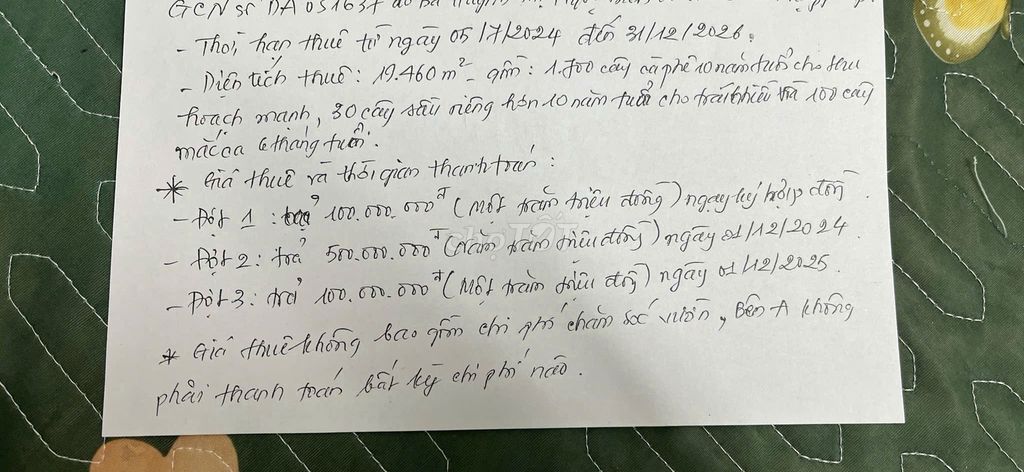 GCN số DA 051637 do bà Nguyễn Thị
- Thời hạn thuê từ ngày 05/7/2024 đến 31/12/2026.
- Diện tích thuê: 19.460 m² - gồm: 1.700 cây cà phê 10 năm tuổi cho thu
hoạch mạnh, 30 cây sầu riêng hơn 10 năm tuổi cho trái nhiều và 100 cây
mắc ca 6 tháng tuổi.
* Giá thuê và thời gian thanh toán:
- Đợt 1: trả 100.000.000đ (Một trăm triệu đồng) ngay ký hợp đồng.
- Đợt 2: trả 500.000.000đ (Năm trăm triệu đồng) ngày 01/12/2024.
- Đợt 3: trả 100.000.000đ (Một trăm triệu đồng) ngày 01/12/2025.
* Giá thuê không bao gồm chi phí chăm sóc vườn, Bên A không
phải thanh toán bất kỳ chi phí nào.